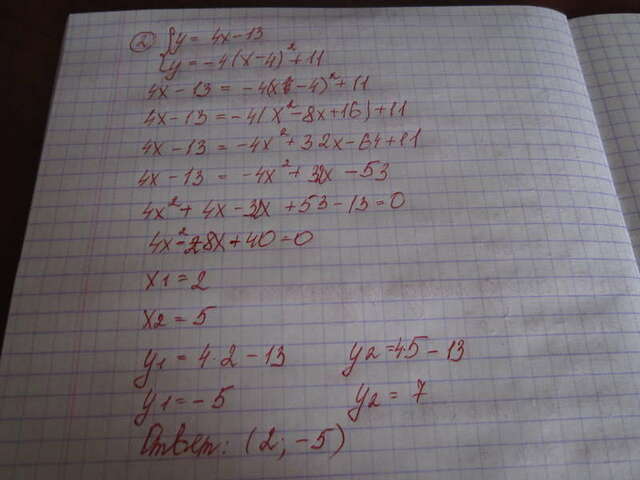 ② { y = 4x - 13
{ y = -4(x-4)² + 11
4x - 13 = -4(x - 4)² + 11
4x - 13 = -4(x² - 8x + 16) + 11
4x - 13 = -4x² + 32x - 64 + 11
4x - 13 = -4x² + 32x - 53
4x² + 4x - 32x + 53 - 13 = 0
4x² - 28x + 40 = 0
x1 = 2
x2 = 5
y1 = 4·2 - 13 y2 = 4·5 - 13
y1 = -5 y2 = 7
Ответ: (2; -5)